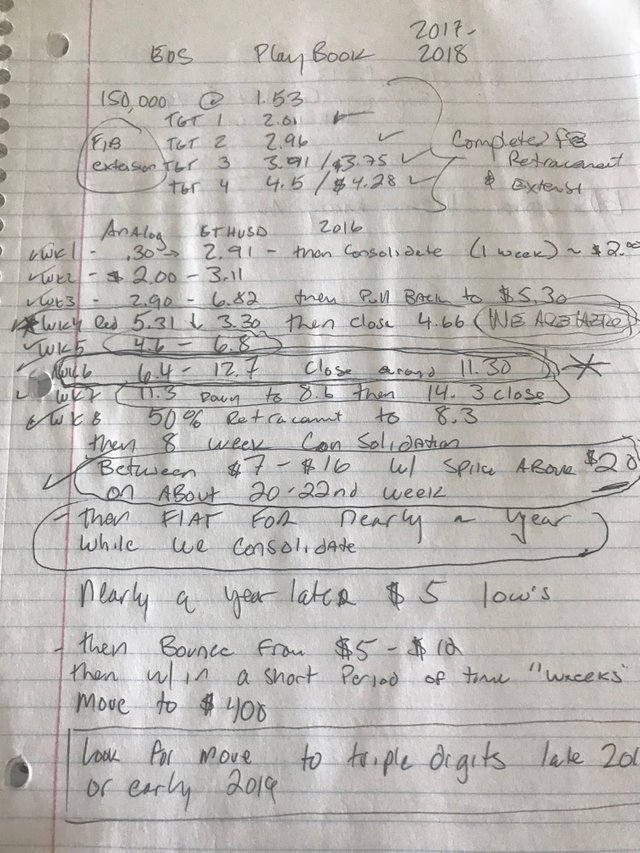 2017-
EOS Play Book 2018
150,000 @ 1.53
TGT 1 2.01 ✓
FIB TGT 2 2.96 ✓ Completed
extension TGT 3 3.91 / $3.75 ✓ Retracement
TGT 4 4.5 / $4.28 ✓ & Extens
Analog ETHUSD 2016
✓ WK1 - .30 → 2.91 - then consolidate (1 week) ~ $2.00
✓ WK2 - $2.00 - 3.11
✓ WK3 - 2.90 - 6.82 then Pull Back to $5.30
WK4 Red 5.31 ↓ 3.30 then close 4.66 WE ARE HERE
✓ WK5 4.6 - 6.8
✓ WK6 6.4 - 12.7 Close around 11.30
✓ WK7 11.3 Down to 8.6 then 14.3 close
✓ WK8 50% Retracemnt to 8.3
then 8 week Consolidation
✓ Between $7 - $16 w/ Spike Above $20
on About 20-22nd week
- then FLAT FOR nearly a year
while we consolidate
Nearly a year later $5 low's
- then Bounce from $5 - $12
then w/in a short Period of time "weeks"
move to $400
Look for move to triple digits late 201
or early 2019